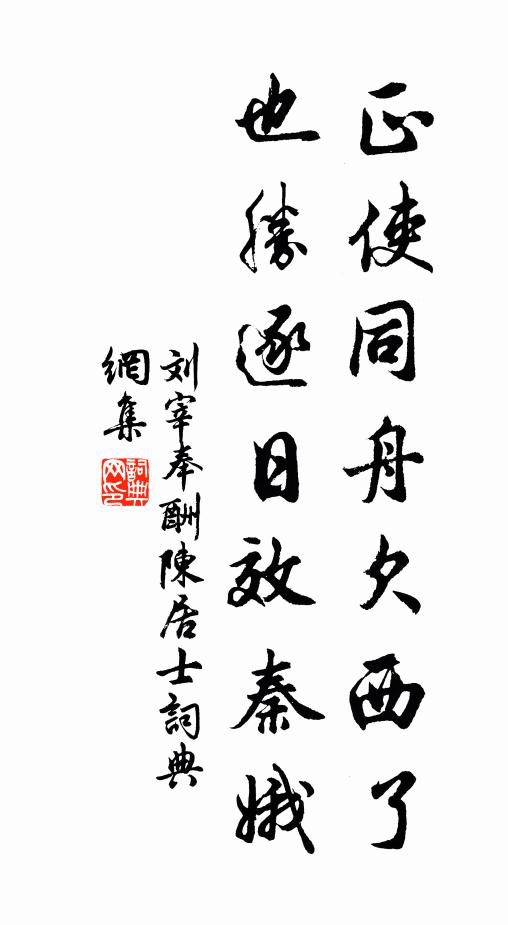 正使同舟欠西了
也勝逐日效秦娥
刘宰奉酬陳居士詞典
網集
詞典網印